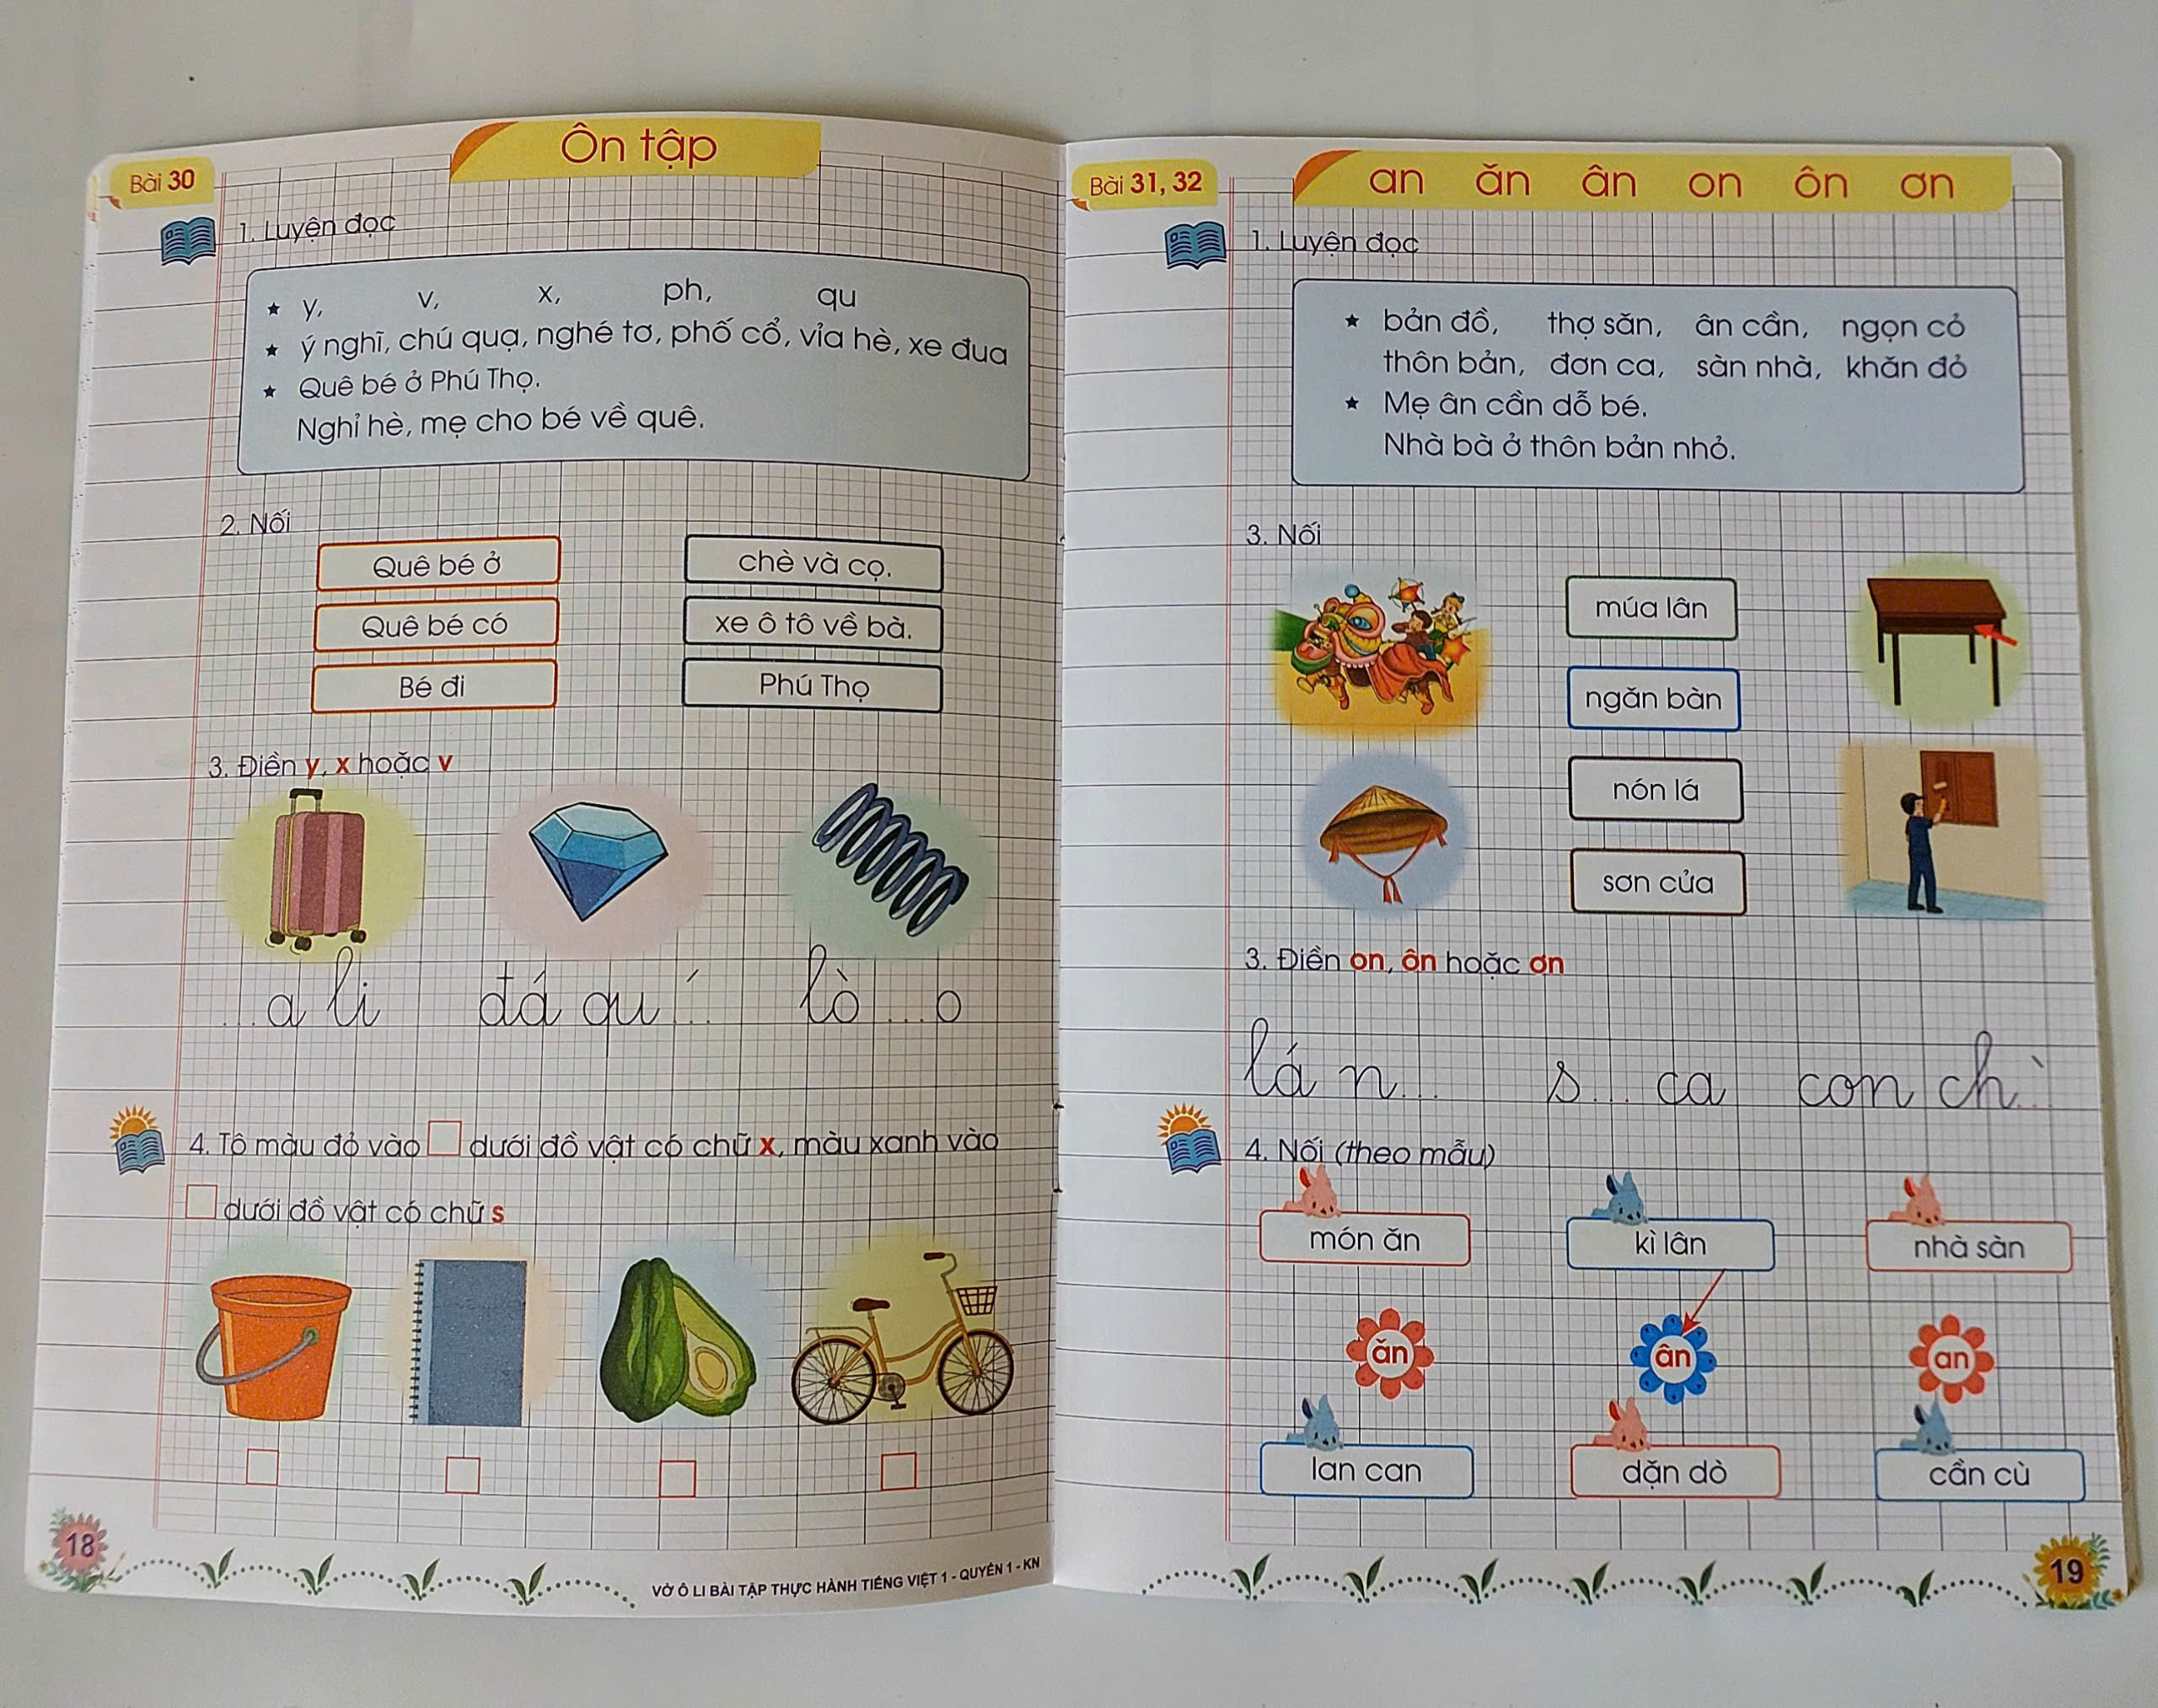 Ôn tập
Bài 30
1. Luyện đọc
★ y, v, x, ph, qu
★ ý nghĩ, chú quạ, nghé tơ, phố cổ, vỉa hè, xe đua
★ Quê bé ở Phú Thọ.
Nghỉ hè, mẹ cho bé về quê.
2. Nối
Quê bé ở chè và cọ.
Quê bé có xe ô tô về bà.
Bé đi Phú Thọ
3. Điền y, x hoặc v
...a li đá qu ́... lò ...o
4. Tô màu đỏ vào □ dưới đồ vật có chữ x, màu xanh vào
□ dưới đồ vật có chữ s
18
VỞ Ô LI BÀI TẬP THỰC HÀNH TIẾNG VIỆT 1 - QUYỂN 1 - KN
Bài 31, 32
an ăn ân on ôn ơn
1. Luyện đọc
★ bản đồ, thợ săn, ân cần, ngọn cỏ
thôn bản, đơn ca, sàn nhà, khăn đỏ
★ Mẹ ân cần dỗ bé.
Nhà bà ở thôn bản nhỏ.
3. Nối
múa lân
ngăn bàn
nón lá
sơn cửa
3. Điền on, ôn hoặc ơn
lá n... s... ca con ch ̀...
4. Nối (theo mẫu)
món ăn kì lân nhà sàn
ăn ân an
lan can dặn dò cần cù
19